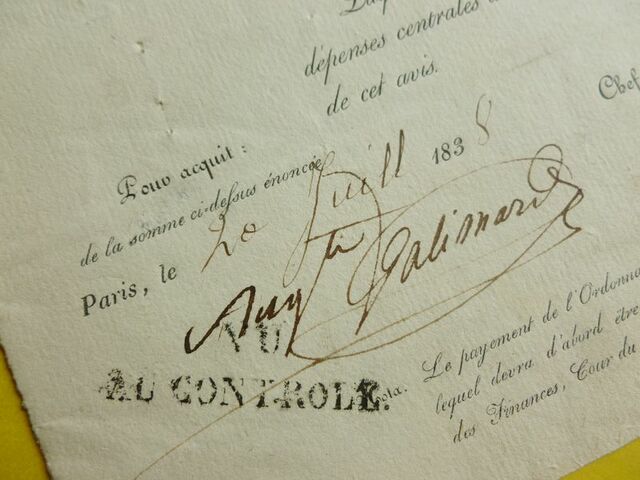 dépenses centrales
de cet avis.
Chef
Pour acquit :
de la somme ci-dessus énoncée
Paris, le 20 Juill 1838
Augtin Galimard
VU
AU CONTROLE.
Nota. Le payement de l'Ordonna
lequel devra d'abord être
des Finances, Cour du